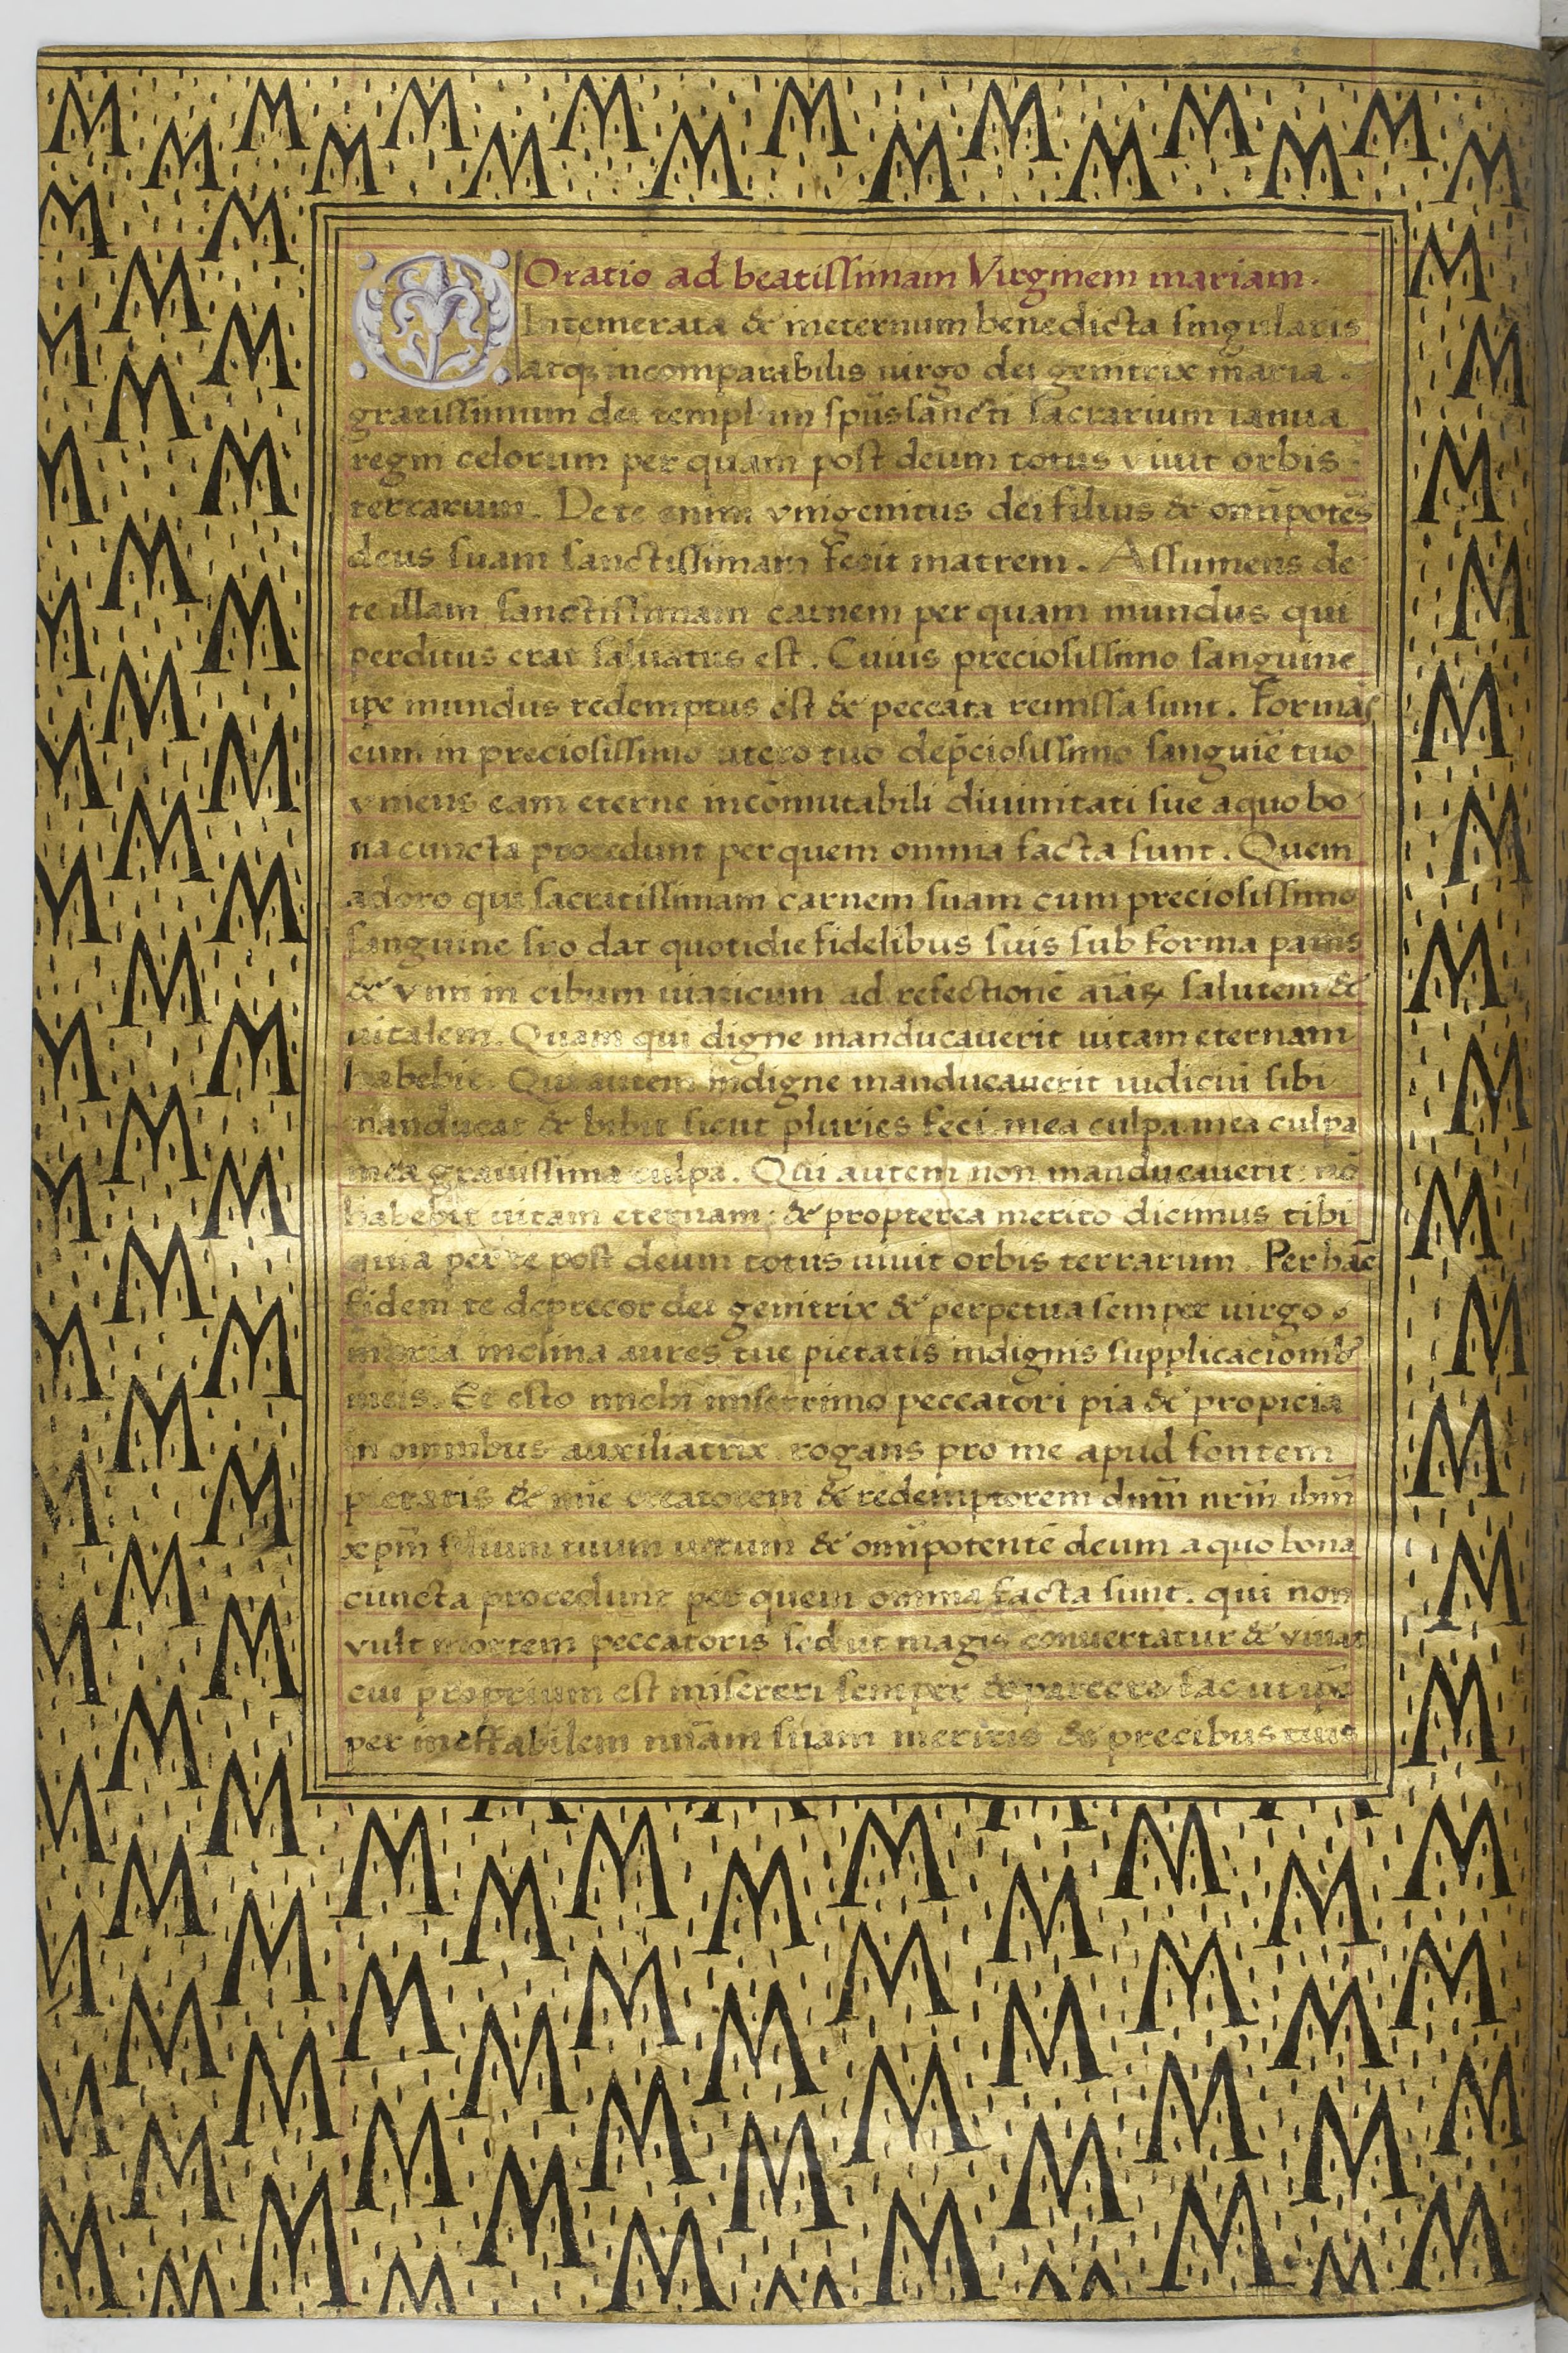 Oratio ad beatissimam Virginem mariam.
O Intemerata & ineternum benedicta singularis
atqꝫ incomparabilis uirgo dei genitrix maria.
gratissimum dei templum spūs sancti sacrarium ianua
regni celorum per quam post deum totus viuit orbis
terrarum. De te enim vnigenitus dei filius & omīpotēs
deus suam sanctissimam fecit matrem. Assumens de
te illam sanctissimam carnem per quam mundus qui
perditus erat saluatus est. Cuius preciosissimo sanguine
ipe mundus redemptus est & peccata remissa sunt. Formās
eum in preciosissimo utero tuo de p̄ciosissimo sanguīe tuo
vniens eam eterne incōmutabili diuinitati sue a quo bo
na cuncta procedunt per quem omnia facta sunt. Quem
adoro qui sacratissimam carnem suam cum preciosissimo
sanguine suo dat quotidie fidelibus suis sub forma panis
& vini in cibum uiaticum ad refectionē aīaꝝ salutem &
uitalem. Quam qui digne manducauerit uitam eternam
habebit. Qui autem indigne manducauerit iudiciū sibi
manducat & bibit sicut pluries feci mea culpa mea culpa
mea grauissima culpa. Qui autem non manducauerit nō
habebit uitam eternam: & propterea merito dicimus tibi
quia per te post deum totus uiuit orbis terrarum. Per hāc
fidem te deprecor dei genitrix & perpetua semper uirgo
maria inclina aures tue pietatis indignis supplicacionibꝰ
meis. Et esto michi miserrimo peccatori pia & propicia
in omnibus auxiliatrix rogans pro me apud fontem
pietatis & mīe creatorem & redemptorem dnm̄ nrm̄ ihm̄
xpm̄ filium tuum uerum & omīpotentē deum a quo bona
cuncta procedunt per quem omnia facta sunt. qui non
vult mortem peccatoris sed ut magis conuertatur & viuat
cui proprium est misereri semper & parcere fac ut ipē
per ineffabilem mīam suam meritis & precibus tuis